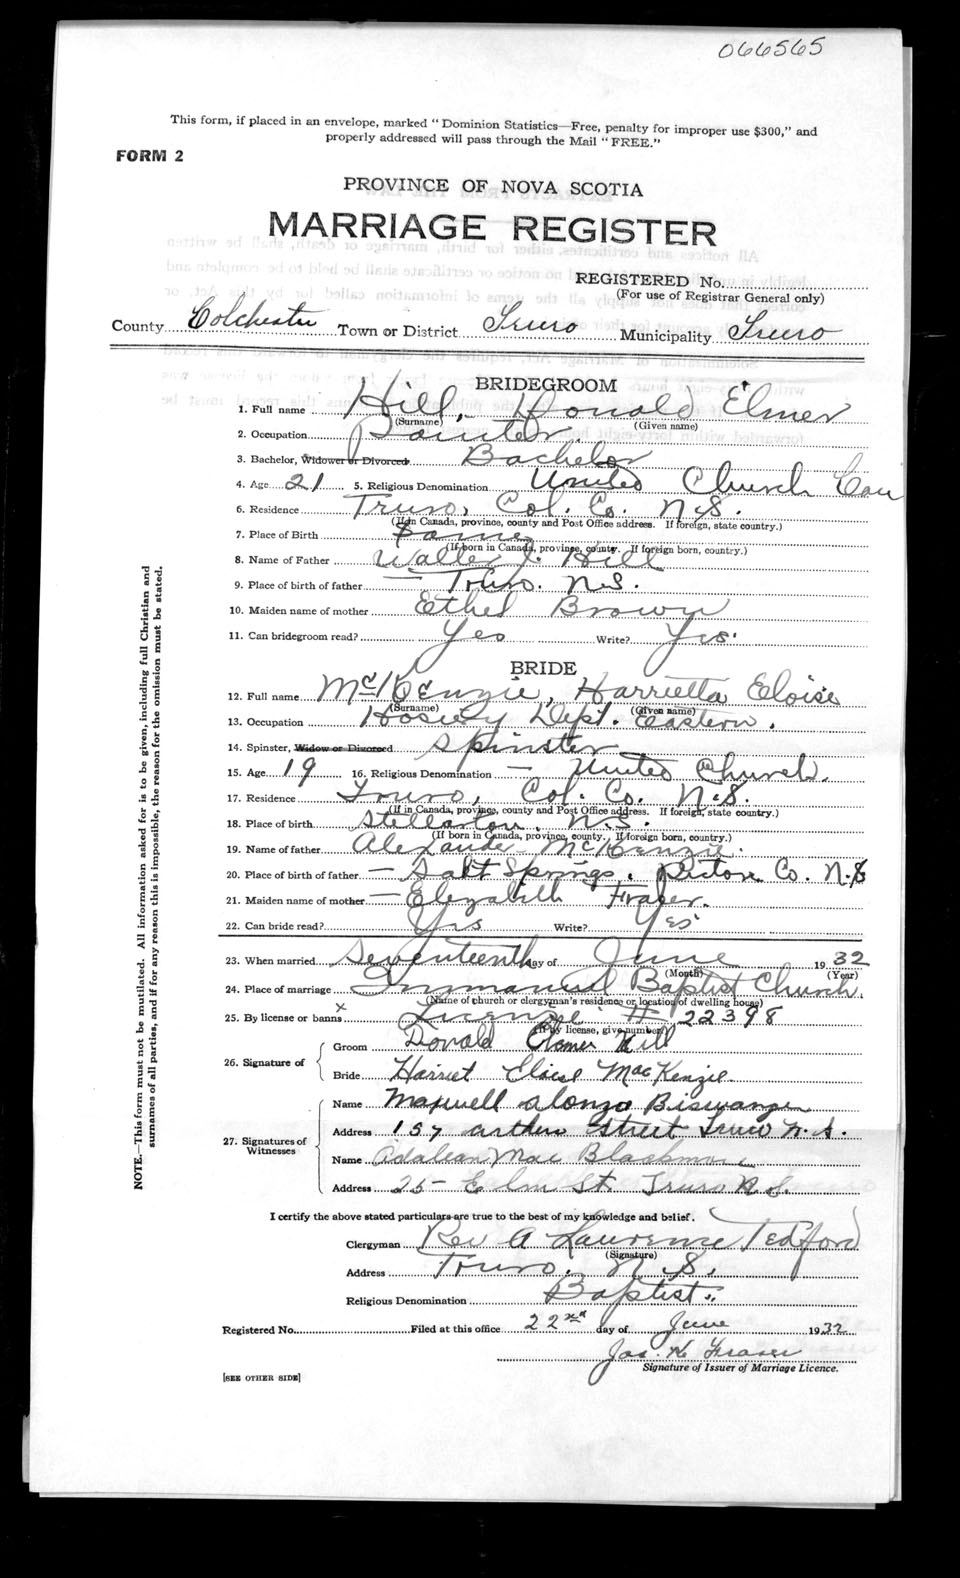 066565
This form, if placed in an envelope, marked "Dominion Statistics—Free, penalty for improper use $300," and
properly addressed will pass through the Mail "FREE."
FORM 2
PROVINCE OF NOVA SCOTIA
MARRIAGE REGISTER
REGISTERED No.
(For use of Registrar General only)
County Colchester Town or District Truro Municipality Truro
BRIDEGROOM
1. Full name Hill, Donald Elmer
(Surname) (Given name)
2. Occupation Painter.
3. Bachelor, Widower or Divorced Bachelor
4. Age 21 5. Religious Denomination United Church Can
6. Residence Truro, Col. Co. N.S.
(If in Canada, province, county and Post Office address. If foreign, state country.)
7. Place of Birth Same
(If born in Canada, province, county. If foreign born, country.)
8. Name of Father Walter J. Hill
9. Place of birth of father — Truro. N.S.
10. Maiden name of mother Ethel Brown
11. Can bridegroom read? Yes Write? Yes.
BRIDE
12. Full name McKenzie, Harrietta Eloise
(Surname) (Given name)
13. Occupation Hosiery Dept. Eastern.
14. Spinster, Widow or Divorced Spinster
15. Age 19 16. Religious Denomination — United Church.
17. Residence Truro, Col. Co. N.S.
(If in Canada, province, county and Post Office address. If foreign, state country.)
18. Place of birth Stellarton, N.S.
(If born in Canada, province, county. If foreign born, country.)
19. Name of father Alexander McKenzie.
20. Place of birth of father — Salt Springs, Pictou Co. N.S
21. Maiden name of mother — Elizabeth Fraser.
22. Can bride read? Yes Write? Yes
23. When married Seventeenth day of June 1932
(Month) (Year)
24. Place of marriage Immanuel Baptist Church.
(Name of church or clergyman's residence or location of dwelling house)
25. By license or banns x License # 22398
(If by license, give number)
26. Signature of Groom Donald Elmer Hill
Bride Harriet Eloise MacKenzie.
27. Signatures of Witnesses
Name Maxwell Alonzo Biswanger
Address 157 Arthur Street Truro N.S.
Name Adalean Mae Blackmore
Address 25- Elm St. Truro N.S.
I certify the above stated particulars are true to the best of my knowledge and belief.
Clergyman Rev A Lawrence Tedford
(Signature)
Address Truro. N.S.
Religious Denomination Baptist.
Registered No. Filed at this office 22nd day of June 1932
Jas. K. Fraser
Signature of Issuer of Marriage Licence.
[SEE OTHER SIDE]
NOTE.—This form must not be mutilated. All information asked for is to be given, including full Christian and
surnames of all parties, and if for any reason this is impossible, the reason for the omission must be stated.